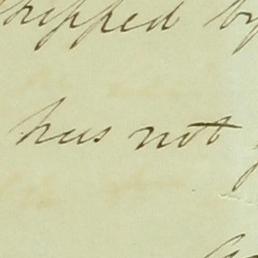 shipped by
has not